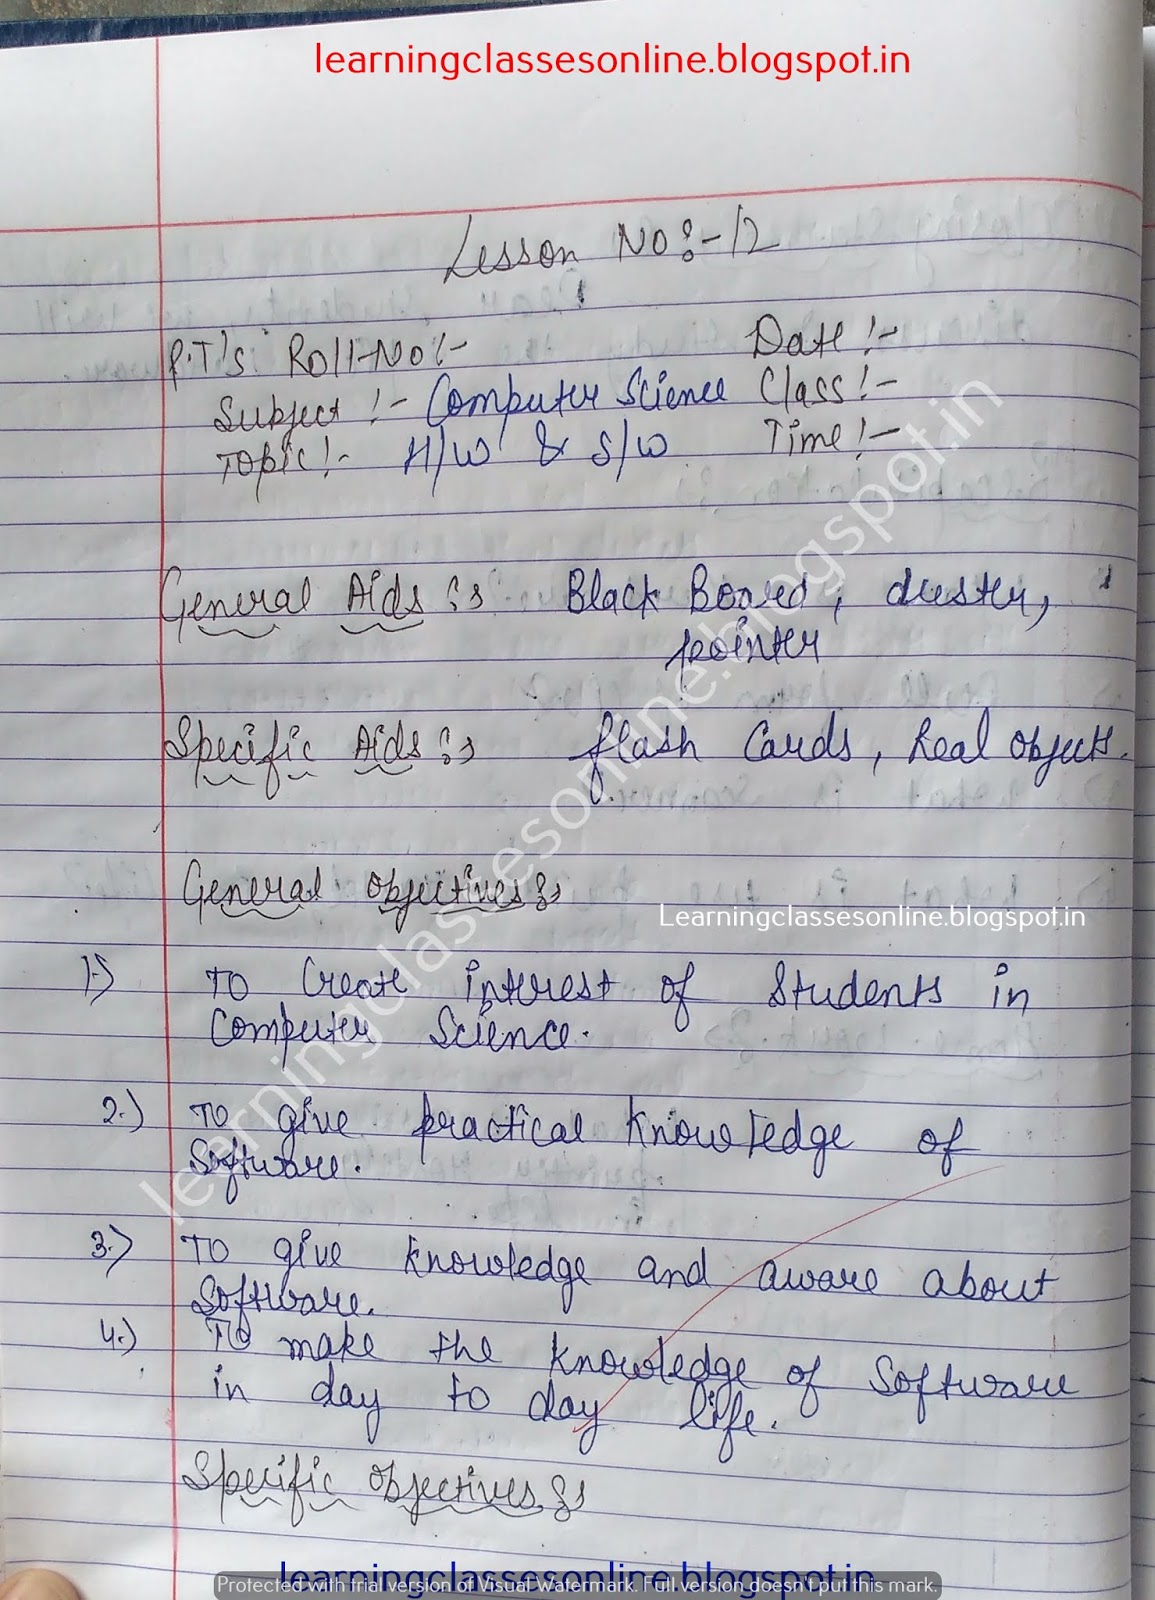 learningclassesonline.blogspot.in
Lesson No:-12
P.T's Roll-No:- Date:-
Subject:- Computer Science Class:-
Topic:- H/W & S/W Time:-
General Aids:- Black Board, duster,
pointer
Specific Aids:- flash Cards, Real objects.
General objectives:-
Learningclassesonline.blogspot.in
1.) To Create interest of Students in
Computer Science.
2.) To give practical knowledge of
Software.
3.) To give knowledge and aware about
Software.
4.) To make the knowledge of Software
in day to day life.
Specific objectives:-
learningclassesonline.blogspot.in
learningclassesonline.blogspot.in
Protected with trial version of Visual Watermark. Full version doesn't put this mark.